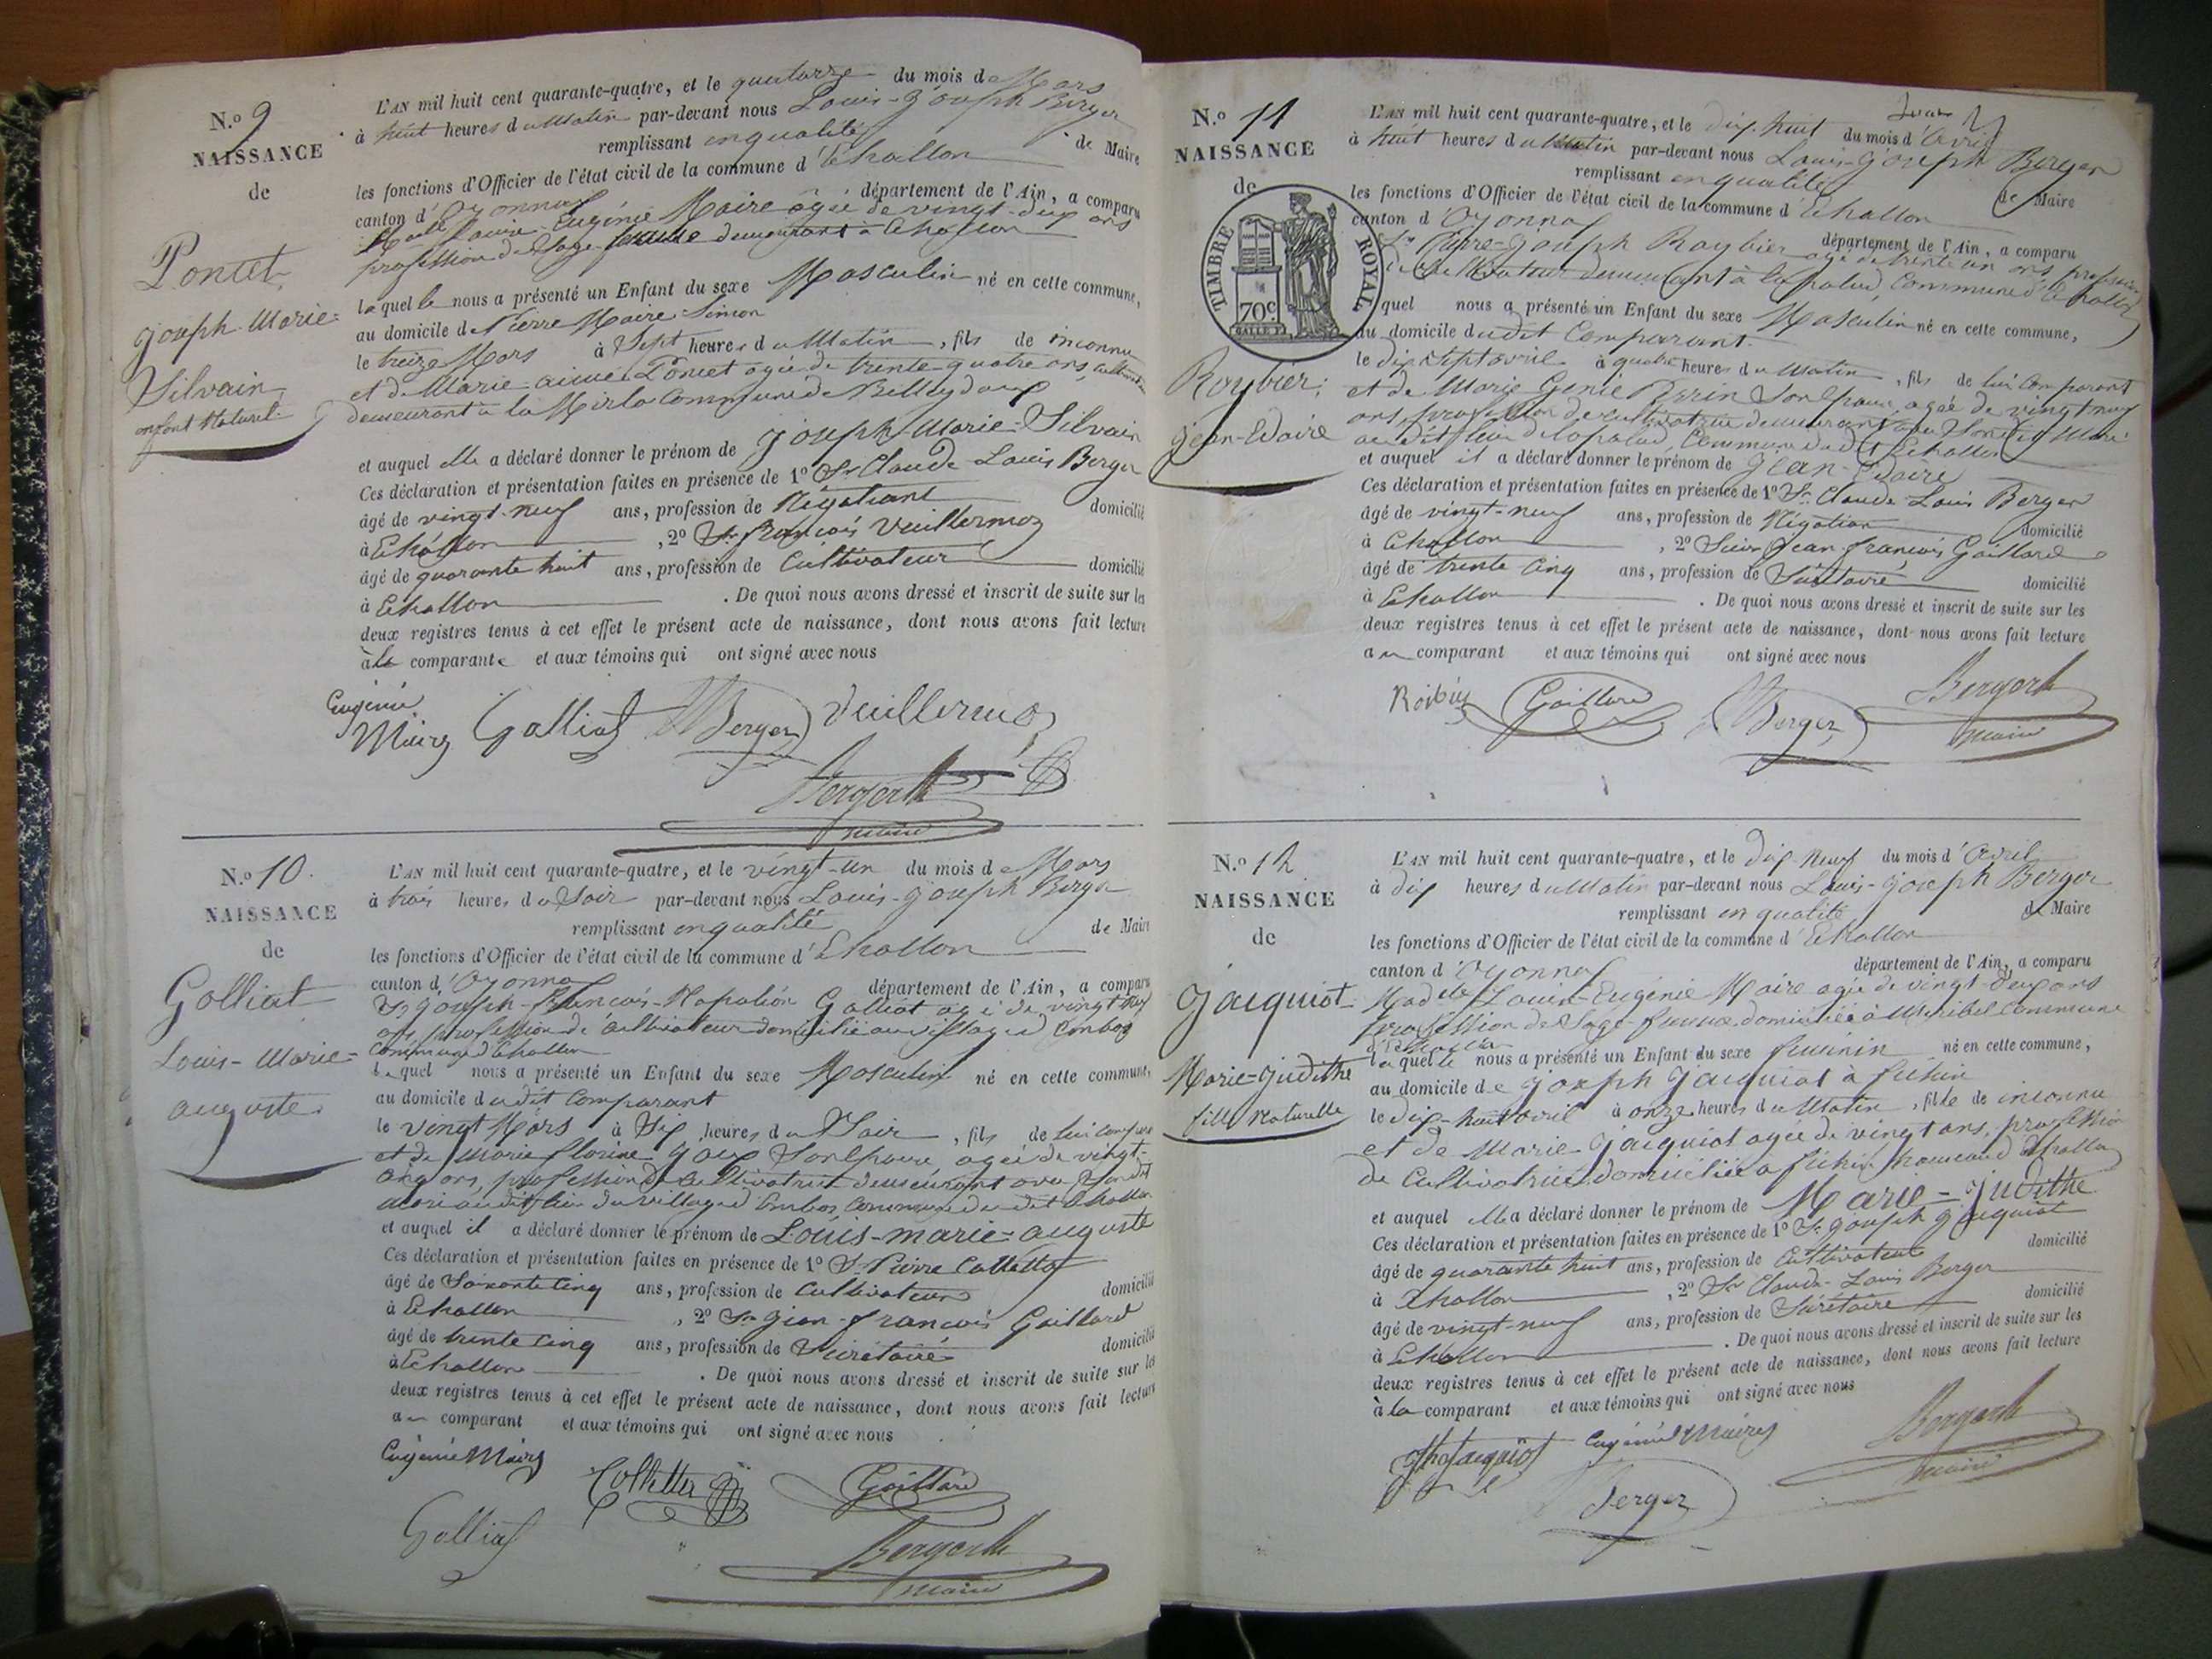 N.o 9
NAISSANCE
de
Poncet
Joseph-Marie-
Silvain
enfant Naturel
L'AN mil huit cent quarante-quatre, et le quatorze du mois de Mars
à huit heures du Matin par-devant nous Louis-Joseph Berger
remplissant en qualité de Maire
les fonctions d'Officier de l'état civil de la commune d'Echallon
canton d'Oyonnax département de l'Ain, a comparu
Louise-Eugénie Maire agée de vingt-deux ans
profession de Sage-femme demeurant à Echallon
laquelle nous a présenté un Enfant du sexe Masculin né en cette commune,
au domicile de Pierre Maire Simon
le treize Mars à Sept heures du Matin, fils de inconnu
et de Marie-aimée Poncet agée de trente-quatre ans, cultivatrice
demeurant à la Commune de Belleydoux
et auquel elle a déclaré donner le prénom de Joseph-Marie-Silvain
Ces déclaration et présentation faites en présence de 1o Sr Claude-Louis Berger
âgé de vingt-neuf ans, profession de Négotiant domicilié
à Echallon, 2o Sr françois Vuillermoz
âgé de quarante huit ans, profession de Cultivateur domicilié
à Echallon. De quoi nous avons dressé et inscrit de suite sur les
deux registres tenus à cet effet le présent acte de naissance, dont nous avons fait lecture
à la comparante et aux témoins qui ont signé avec nous
Eugénie
Maire Golliat Berger Vuillermoz
Maire
N.o 10.
NAISSANCE
de
Golliat
Louis-Marie-
auguste
L'AN mil huit cent quarante-quatre, et le vingt-un du mois de Mars
à trois heures du Soir par-devant nous Louis-Joseph Berger
remplissant en qualité de Maire
les fonctions d'Officier de l'état civil de la commune d'Echallon
canton d'Oyonnax département de l'Ain, a comparu
Sr Joseph-François-Napoléon Golliat agé de vingt neuf
ans profession de Cultivateur domicilié au village d'Embos
commune d'Echallon
lequel nous a présenté un Enfant du sexe Masculin né en cette commune,
au domicile dudit Comparant
le vingt Mars à Six heures du Soir, fils de lui comparant
et de Marie florine Goux Son Epouse, agée de vingt-
cinq ans, profession de Cultivatrice demeurant avec Son dit
Mari audit lieu du village d'Embos, Commune du dit Echallon
et auquel il a déclaré donner le prénom de Louis-marie-auguste
Ces déclaration et présentation faites en présence de 1o Sr Pierre Collettaz
âgé de Soixante cinq ans, profession de Cultivateur domicilié
à Echallon, 2o Sr Jean-françois Gaillard
âgé de trente cinq ans, profession de Sécrétaire domicilié
à Echallon. De quoi nous avons dressé et inscrit de suite sur les
deux registres tenus à cet effet le présent acte de naissance, dont nous avons fait lecture
au comparant et aux témoins qui ont signé avec nous
Eugénie Maire
Gaillard
Golliat
Maire
N.o 11
NAISSANCE
de
TIMBRE ROYAL
70c
Roybier
Jean-Edoire
L'AN mil huit cent quarante-quatre, et le dix huit du mois d'Avril
à huit heures du Matin par-devant nous Louis-Joseph Berger
remplissant en qualité de Maire
les fonctions d'Officier de l'état civil de la commune d'Echallon
canton d'Oyonnax département de l'Ain, a comparu
Sr Pierre-Joseph Roybier agé de trente un ans profession
de Cultivateur demeurant à lapalud, Commune d'Echallon
lequel nous a présenté un Enfant du sexe Masculin né en cette commune,
au domicile dudit Comparant
le dix septavril à quatre heures du Matin, fils de lui Comparant
et de Marie Génie Perrin Son Epouse, agée de vingt neuf
ans, profession de cultivatrice demeurant avec Son dit Mari
au dit lieu de lapalud, Commune dudit Echallon
et auquel il a déclaré donner le prénom de Jean-Edoire
Ces déclaration et présentation faites en présence de 1o Sr Claude-Louis Berger
âgé de vingt-neuf ans, profession de Négotian domicilié
à Echallon, 2o Jean-françois Gaillard
âgé de trente cinq ans, profession de Sécrétaire domicilié
à Echallon. De quoi nous avons dressé et inscrit de suite sur les
deux registres tenus à cet effet le présent acte de naissance, dont nous avons fait lecture
au comparant et aux témoins qui ont signé avec nous
Gaillard Berger
Maire
N.o 12
NAISSANCE
de
Jacquiot
Marie-Judithe
fille Naturelle
L'AN mil huit cent quarante-quatre, et le dix-Neuf du mois d'Avril
à dix heures du Matin par-devant nous Louis-Joseph Berger
remplissant en qualité de Maire
les fonctions d'Officier de l'état civil de la commune d'Echallon
canton d'Oyonnax département de l'Ain, a comparu
Madelle Louise-Eugénie Maire agée de vingt-deux ans
profession de Sage-femme domiciliée à Miribel Commune
d'Echallon
laquelle nous a présenté un Enfant du sexe feminin né en cette commune,
au domicile de Joseph Jacquiot à
le dix-huit avril à onze heures du Matin, fille de inconnu
et de Marie Jacquiot agée de vingt ans, profession
de Cultivatrice domiciliée à hameau d'Echallon
et auquel elle a déclaré donner le prénom de Marie-Judithe
Ces déclaration et présentation faites en présence de 1o Sr Joseph Jacquiot
âgé de quarante huit ans, profession de Cultivateur domicilié
à Echallon, 2o Sr Claude-Louis Berger
âgé de vingt-neuf ans, profession de Sécrétaire domicilié
à Echallon. De quoi nous avons dressé et inscrit de suite sur les
deux registres tenus à cet effet le présent acte de naissance, dont nous avons fait lecture
à la comparant et aux témoins qui ont signé avec nous
Jacquiot Eugénie Maire
Berger
Maire